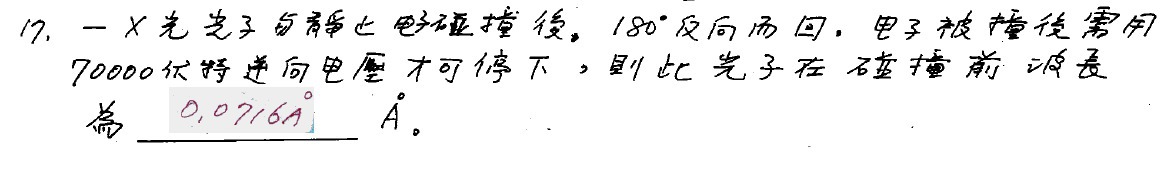 17. 一X光光子与靜止电子碰撞後。180°反向而回.电子被撞後需用
70000伏特逆向电壓才可停下，則此光子在碰撞前波長
為 0.0716Å Å。